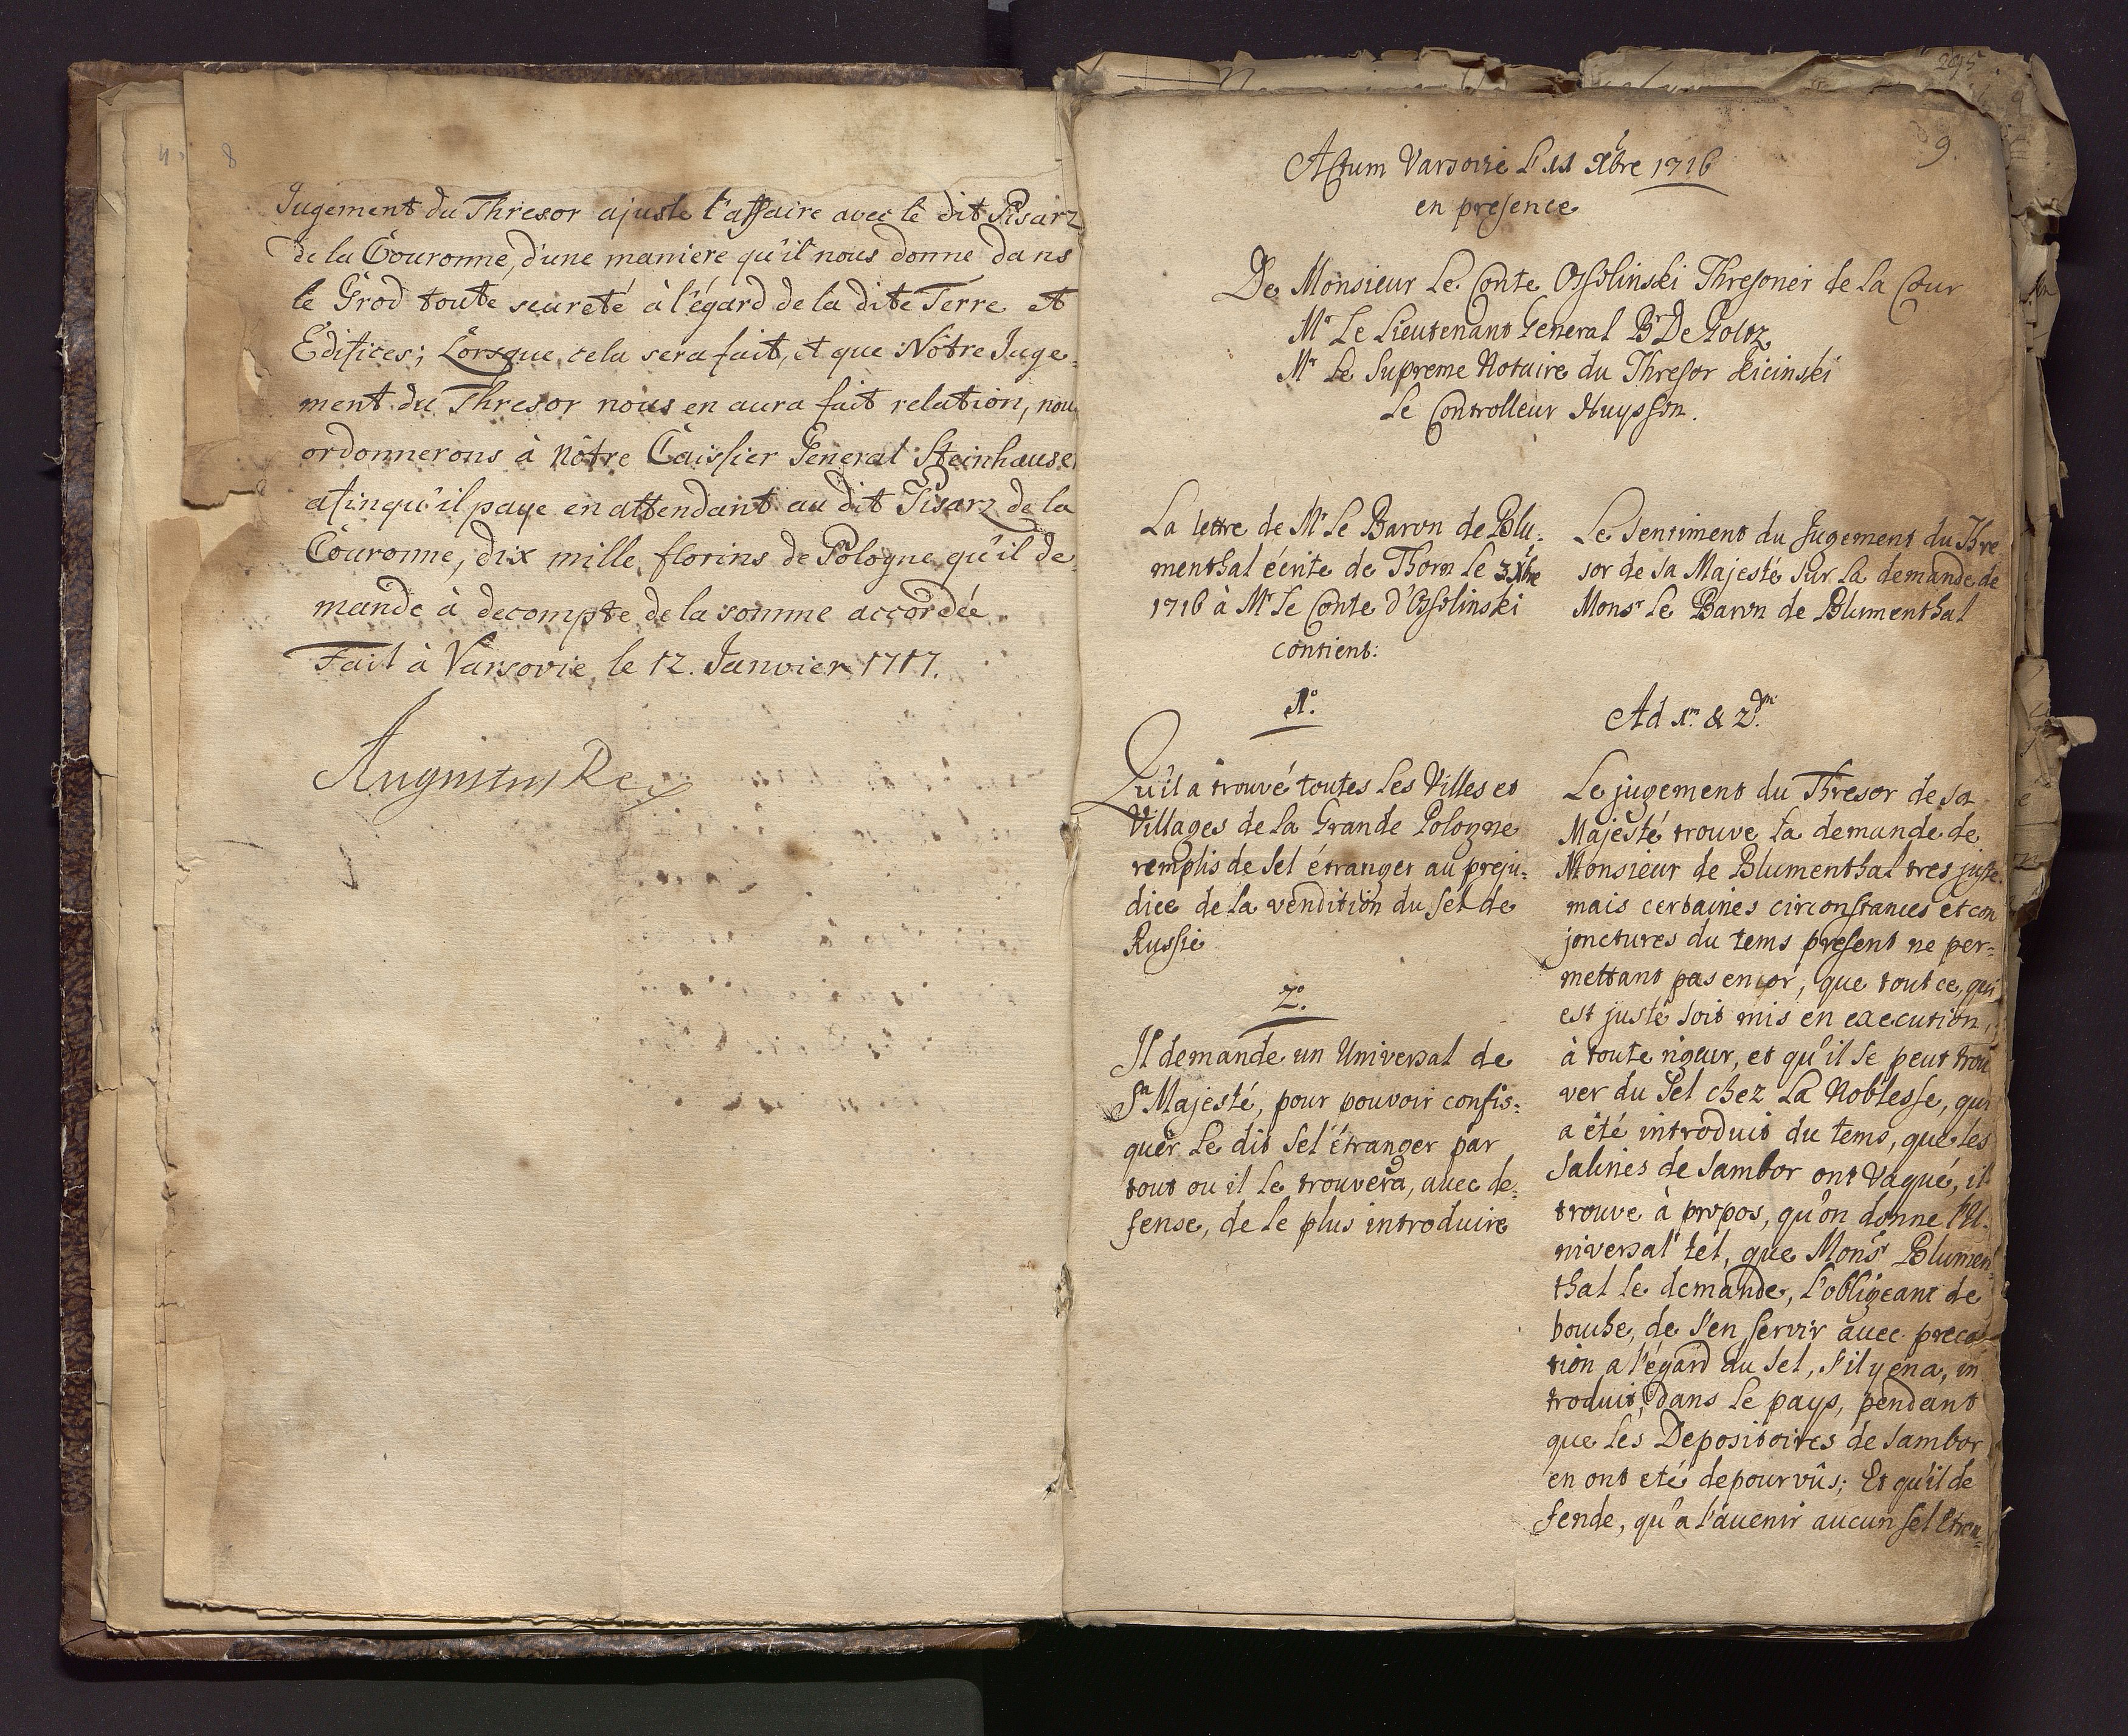 8
Jugement du Thresor ajuste l'affaire avec le dit Pisarz
de la Couronne, d'une maniere qu'il nous donne dans
le Grod toute seureté à l'égard de la dite Terre et
Edifices; Lorsque cela sera fait, et que Nôtre Juge=
ment du Thresor nous en aura fait relation, nou
ordonnerons à nôtre Caissier General Steinhause
afinqu'il paye en attendant au dit Pisarz de la
Couronne, dix mille florins de Pologne qu'il de
mande à decompte de la somme accordée.
Fait à Varsovie, le 12. Janvier 1717.
Augustus Rex
295
9.
Actum Varsovie Le 11 Xbre 1716
en presence
De Monsieur Le Conte Ossolinski Thresorier de la Cour
Mr Le Lieutenant General Br De Goltz
Mr Le Supreme Notaire du Thresor Kicinski
Le Controlleur Huysson.
La lettre de Mr Le Baron de Blu=
menthal écrite de Thorn le 3 Xbre
1716 à Mr Le Conte d'Ossolinski
contient:
1°.
Qu'il a trouvé toutes les Villes et
Villages de la Grande Pologne
remplis de Sel étranger au preju=
dice de la vendition du Sel de
Russie
2°.
Il demande un Universal de
Sa Majesté, pour pouvoir confis=
quer le dit Sel étranger par
tout ou il le trouvera, avec de=
fense, de le plus introduire
Le Sentiment du Jugement du Thre
sor de Sa Majesté sur la demande de
Monsr Le Baron de Blumenthal
Ad 1m & 2dm
Le jugement du Thresor de sa
Majesté trouve la demande de
Monsieur de Blumenthal tres juste
mais certaines circonstances et con
jonctures du tems present ne per=
mettant pas encor, que tout ce, qui
est juste soit mis en execution,
à toute rigeur, et qu'il se peut trou
ver du Sel chez La Noblesse, qui
a été introduit du tems, que les
Salines de Sambor ont Vaqué, il
trouve à propos, qu'on donne l'U=
niversal tel, que Monsr Blumen=
thal le demande, l'obligeant de
bouche, de s'en servir avec preca
tion a l'égard du Sel, s'il y en a, in
troduit, dans le pays, pendant
que les Depositoires de Sambor
en ont eté depourvûs; Et qu'il de
fende, qu'a l'avenir aucun Sel Etran=